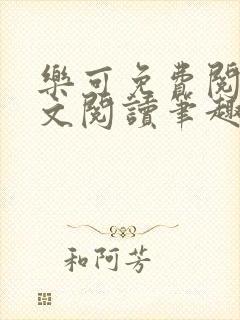 樂可免費閱
文閱讀筆趣
和阿芳